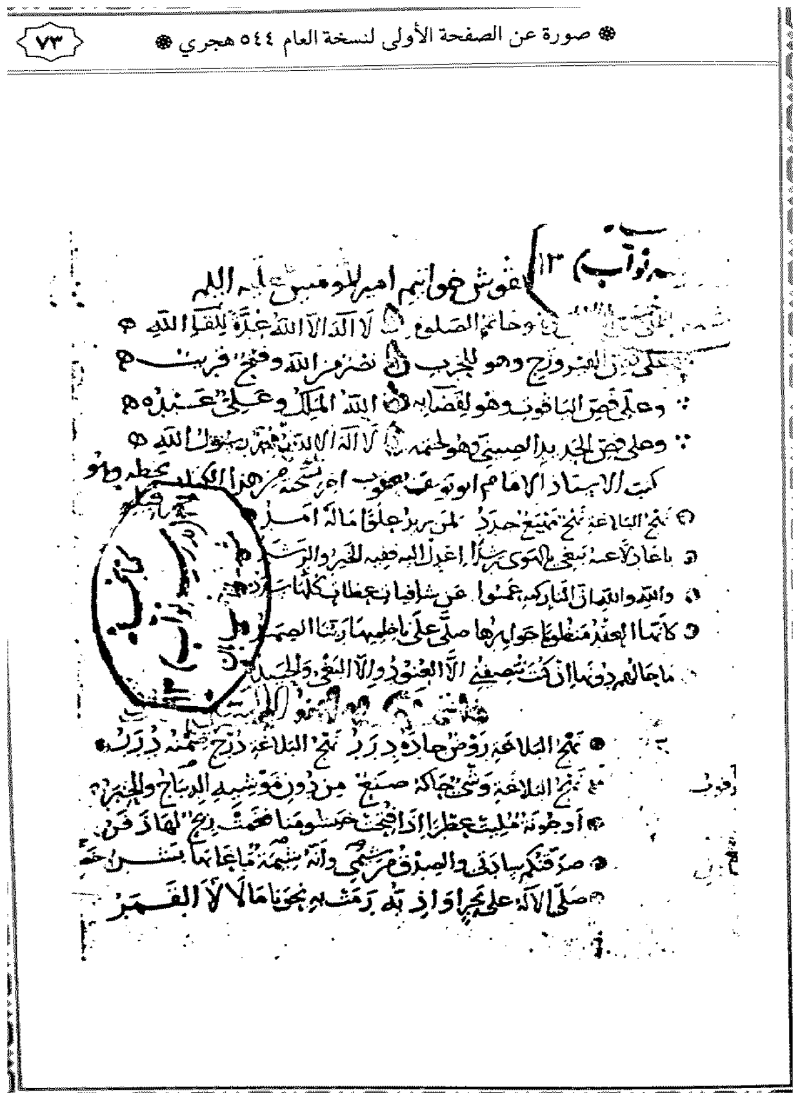 ❁ صورة عن الصفحة الأولى لنسخة العام ٥٤٤ هجري ❁
٧٣
نواب ١٣
نقوش خواتيم امير المومنين عليه السلم
وخاتم الصلوة لا اله الا الله عدة للقا الله
على فص الفيروزج وهو للحرب نصر من الله وفتح قريب
وعلى فص الياقوت وهو لقضايه الله الملك وعلي عبده
وعلى فص الحديد الصيني وهو لختمه لا اله الا الله محمد رسول الله
كتب الاستاذ الامام ابو يوسف يعقوب احمد نسخة من هذا الكتاب بخطه وهو
نهج البلاغة نهج مهيع جدد لمن يريد علوا ماله امد
يا عادلا عنه تبغي بالهوى رشدا اعدل اليه ففيه الخير والرشد
والله والله ان التاركيه عموا عن شافيات عظات كلها سدد
كانها العقد منظوما جواهرها صلى على ناظميها ربنا الصمد
ما حالهم دونها ان كنت تنصفني الا العنود والا البغي والحسد
نهج البلاغة روض جاده درر نهج البلاغة درج ضمنه درر
نهج البلاغة وشي حاكه صنع من دون موشيه الديباج والحبر
او جونة ملئت عطرا اذا فتحت خيشومنا فغمت ريح لها ذفر
صدقتكم سادتي والصدق من شيمي وانه شيمة ما عابها بشر
صلى الاله على بحر اواذيه رمت به نحونا ما لالا القمر